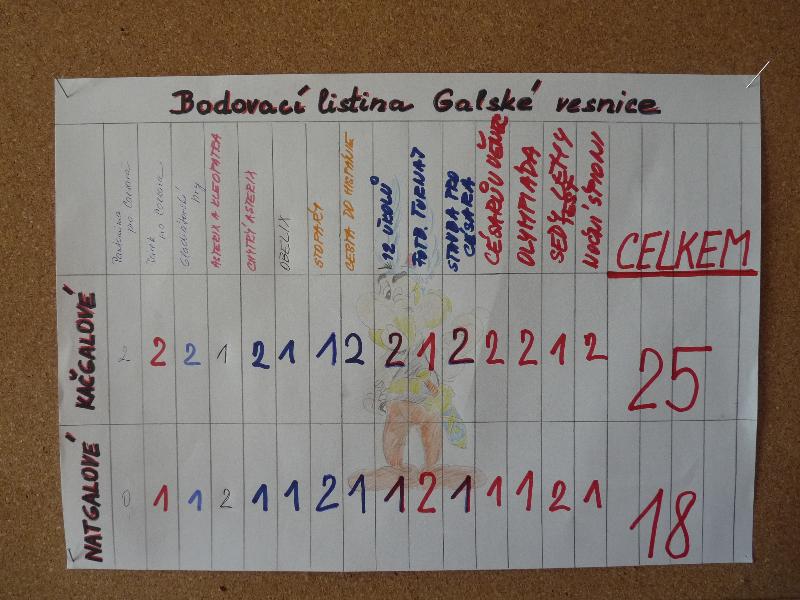 Bodovací listina Galské vesnice
Pandomima pro Caesara
Dárek pro Caesara
Gladiátorské hry
ASTERIX A KLEOPATRA
CHYTRÝ ASTERIX
OBELIX
STOPAŘI
CESTA DO HISPÁNIE
12 ÚKOLŮ
FOTB. TURNAJ
STAVBA PRO CÉSARA
CÉSARŮV VĚNEC
OLYMPIÁDA
NOČNÍ
CELKEM
KAČGALOVÉ 2 2 1 2 1 1 2 2 1 2 2 2 1 2 25
NATGALOVÉ 0 1 1 2 1 1 2 1 1 2 1 1 1 2 1 18